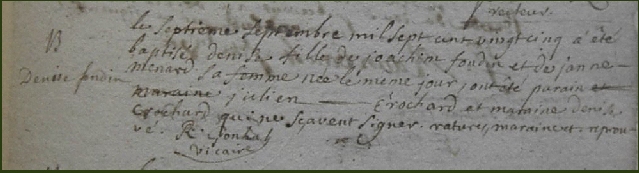 recteur
B
Denise fondin
le septieme septembre mil sept cent vingt cinq a été
baptisée denise fille de joachim et de janne
menard sa femme née le meme jour, ont été parain et
maraine julien Crochard et maraine denise
Crochard qui ne sçavent signer. ratures, maraine et reprou
vé.
vicaire